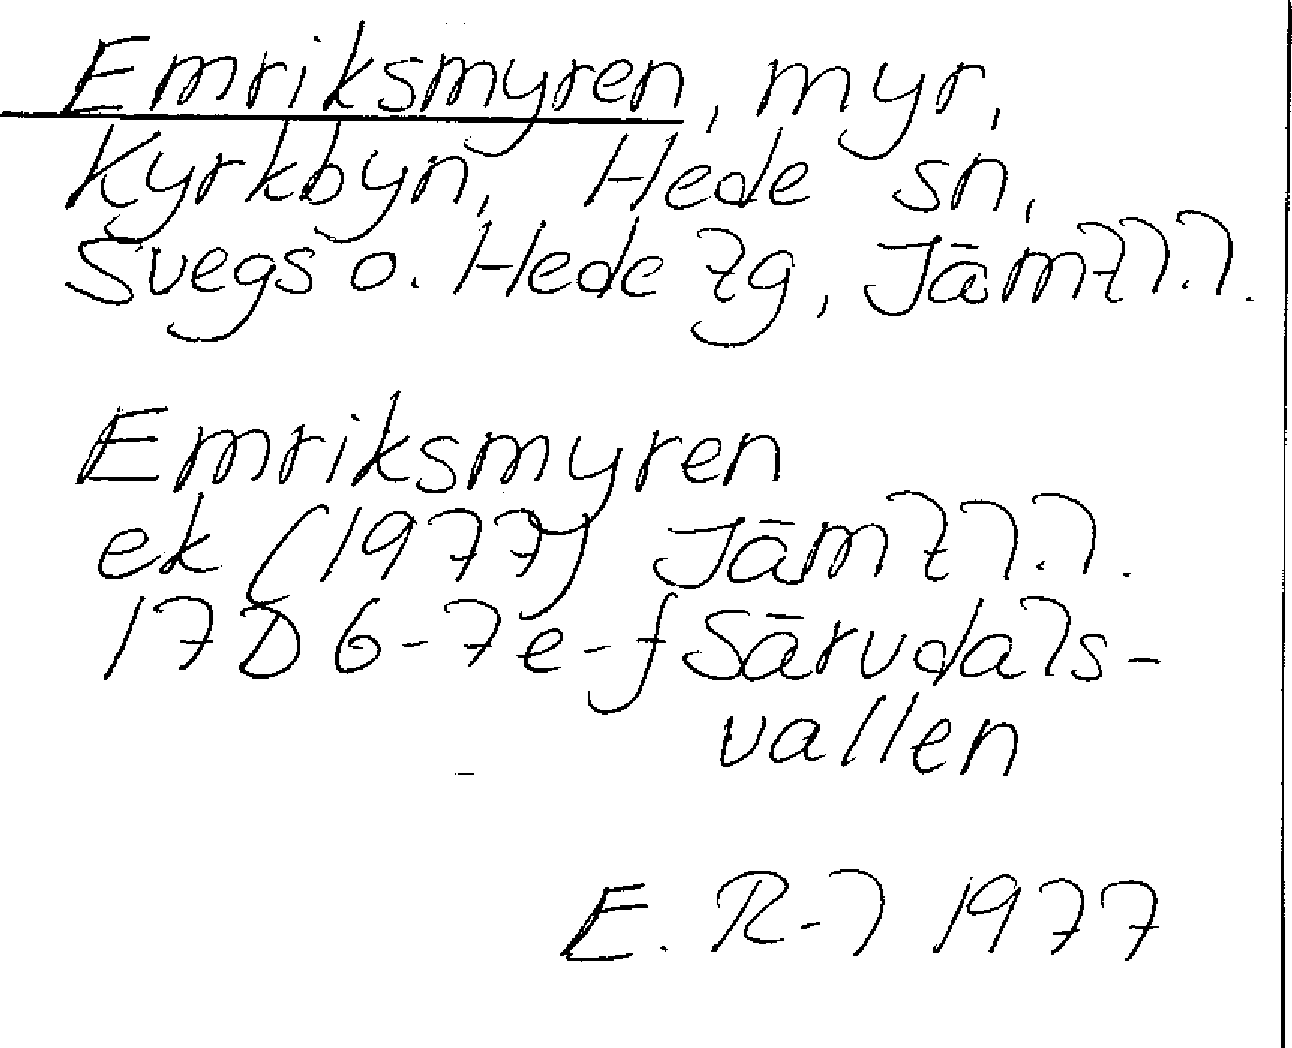 Emriksmyren, myr,
Kyrkbyn, Hede sn,
Svegs o. Hede tg, Jämtl.l.
Emriksmyren
ek (1977) Jämtl.l.
17D 6-7e-f Särvdals-
vallen
E. R-l 1977